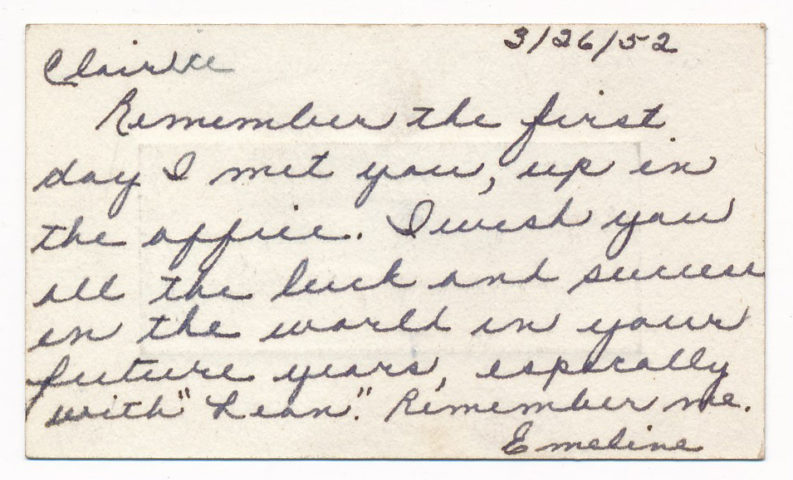 3/26/52
Remember the first
day I met you, up in
the office. I wish you
all the luck and success
in the world in your
future years, especally
with "Lean". Remember me.
Emeline